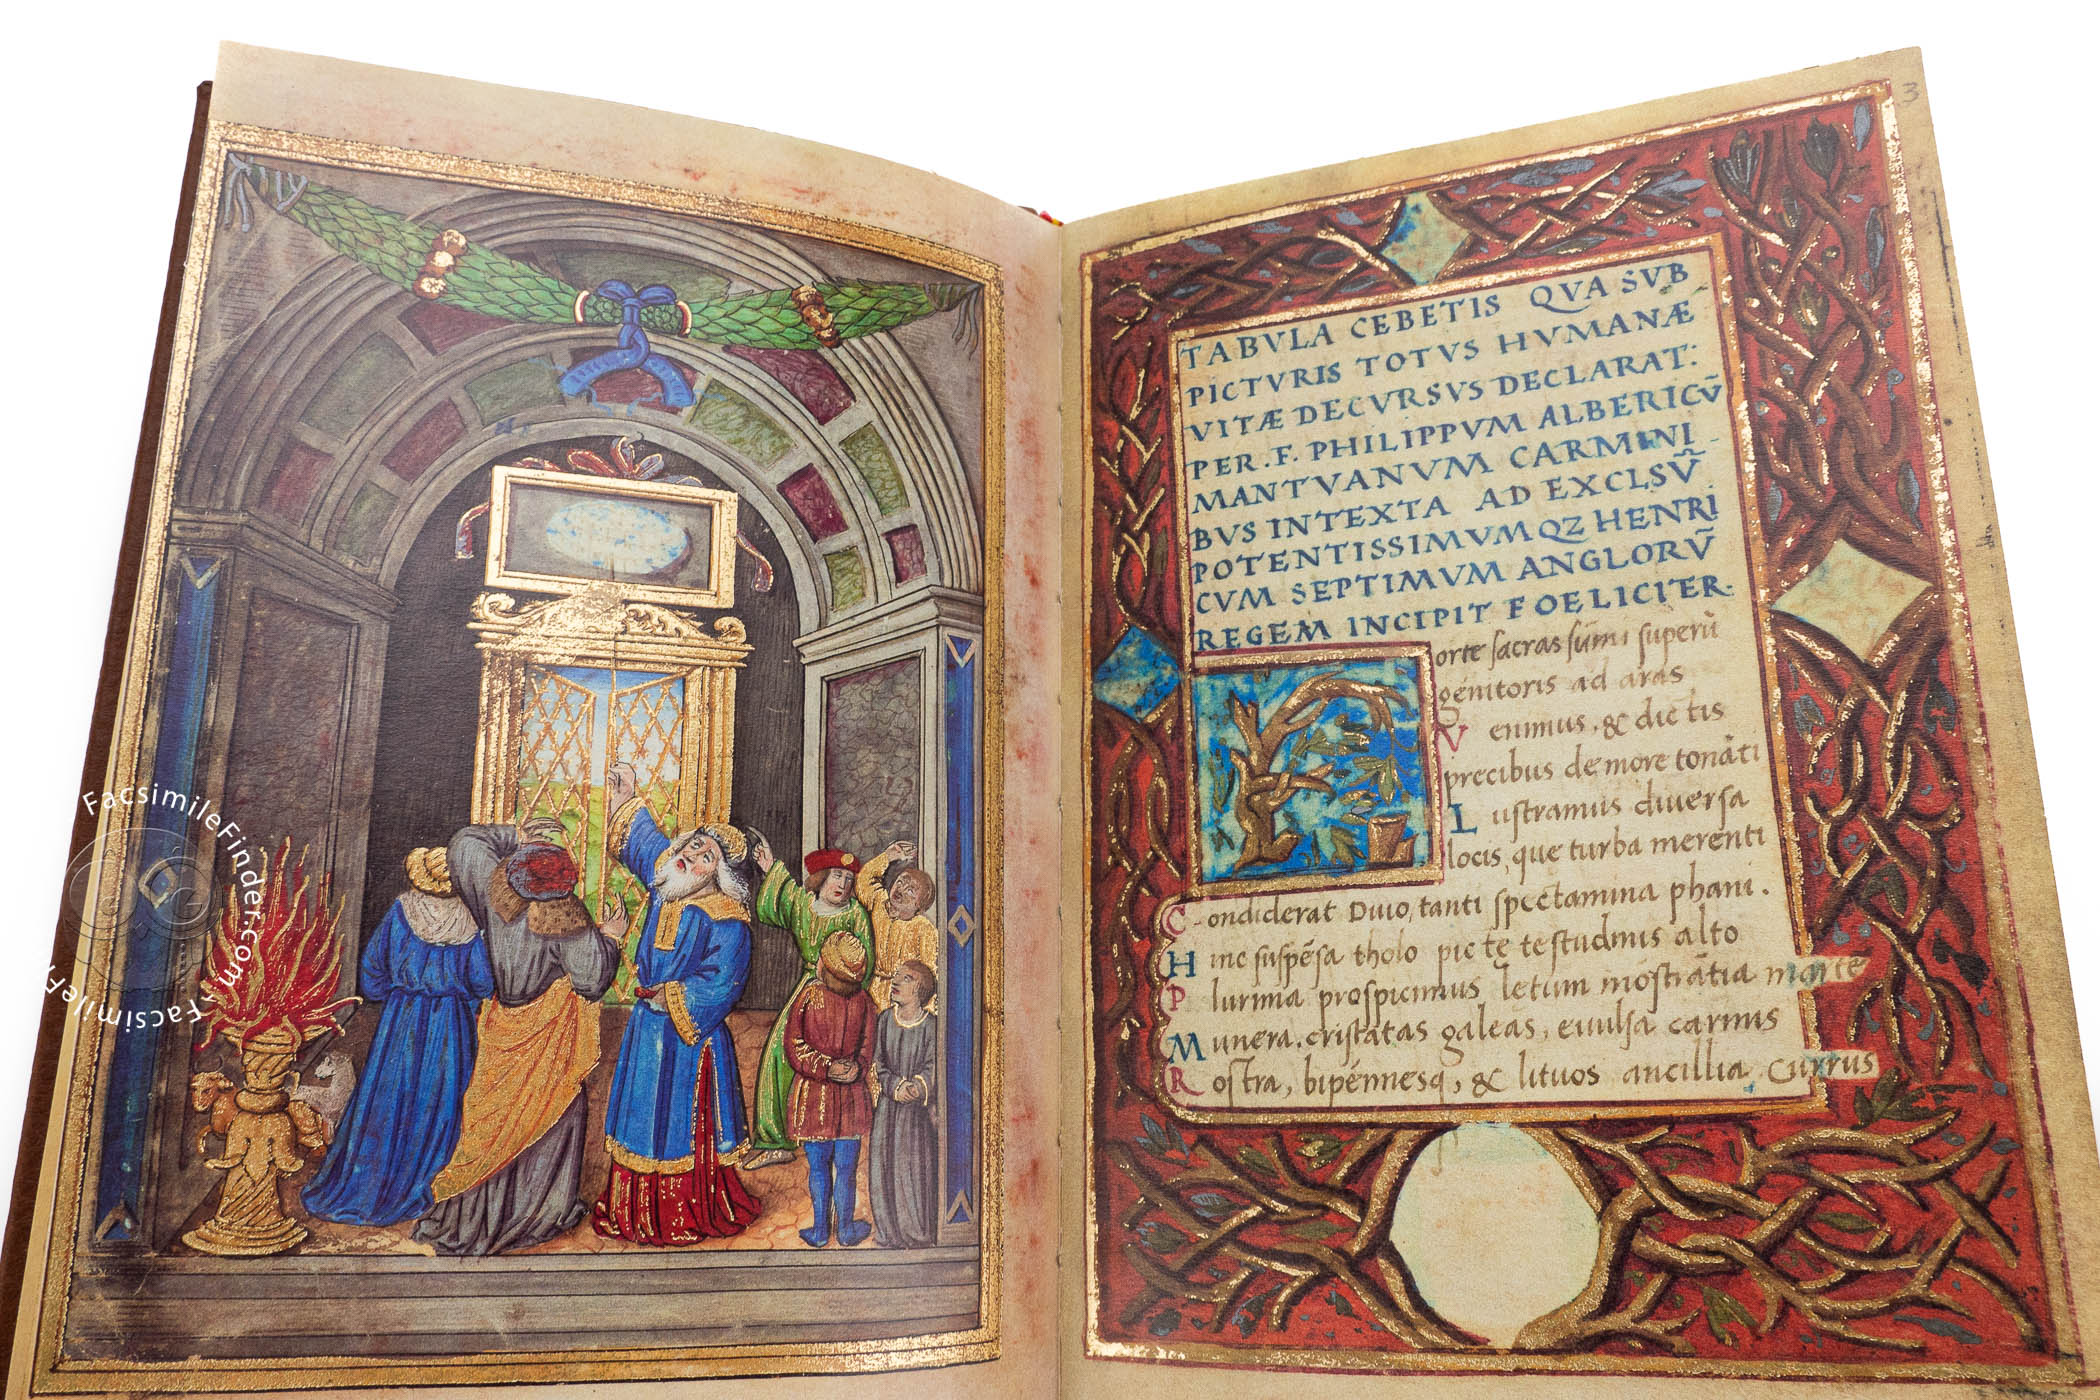 3
TABVLA CEBETIS QVA SVB
PICTVRIS TOTVS HVMANÆ
VITÆ DECVRSVS DECLARAT:
PER.F. PHILIPPVM ALBERICŪ
MANTVANVM CARMINI
BVS INTEXTA AD EXCLSŪ
POTENTISSIMVMQZ HENRI
CVM SEPTIMVM ANGLORŪ
REGEM INCIPIT FOELICITER.
Forte sacras sūmi superū
genitoris ad aras
Venimus, & dictis
precibus de more tonāti
Lustramus diuersa
locis, que turba merenti
Condiderat Diuo, tanti spectamina phani.
Hinc suspēsa tholo picte testudinis alto
Plurima prospicimus letum mostrātia marte
Munera, cristatas galeas, euulsa carinis
Rostra, bipennesq, & lituos ancillia currus
FacsimileFinder.com